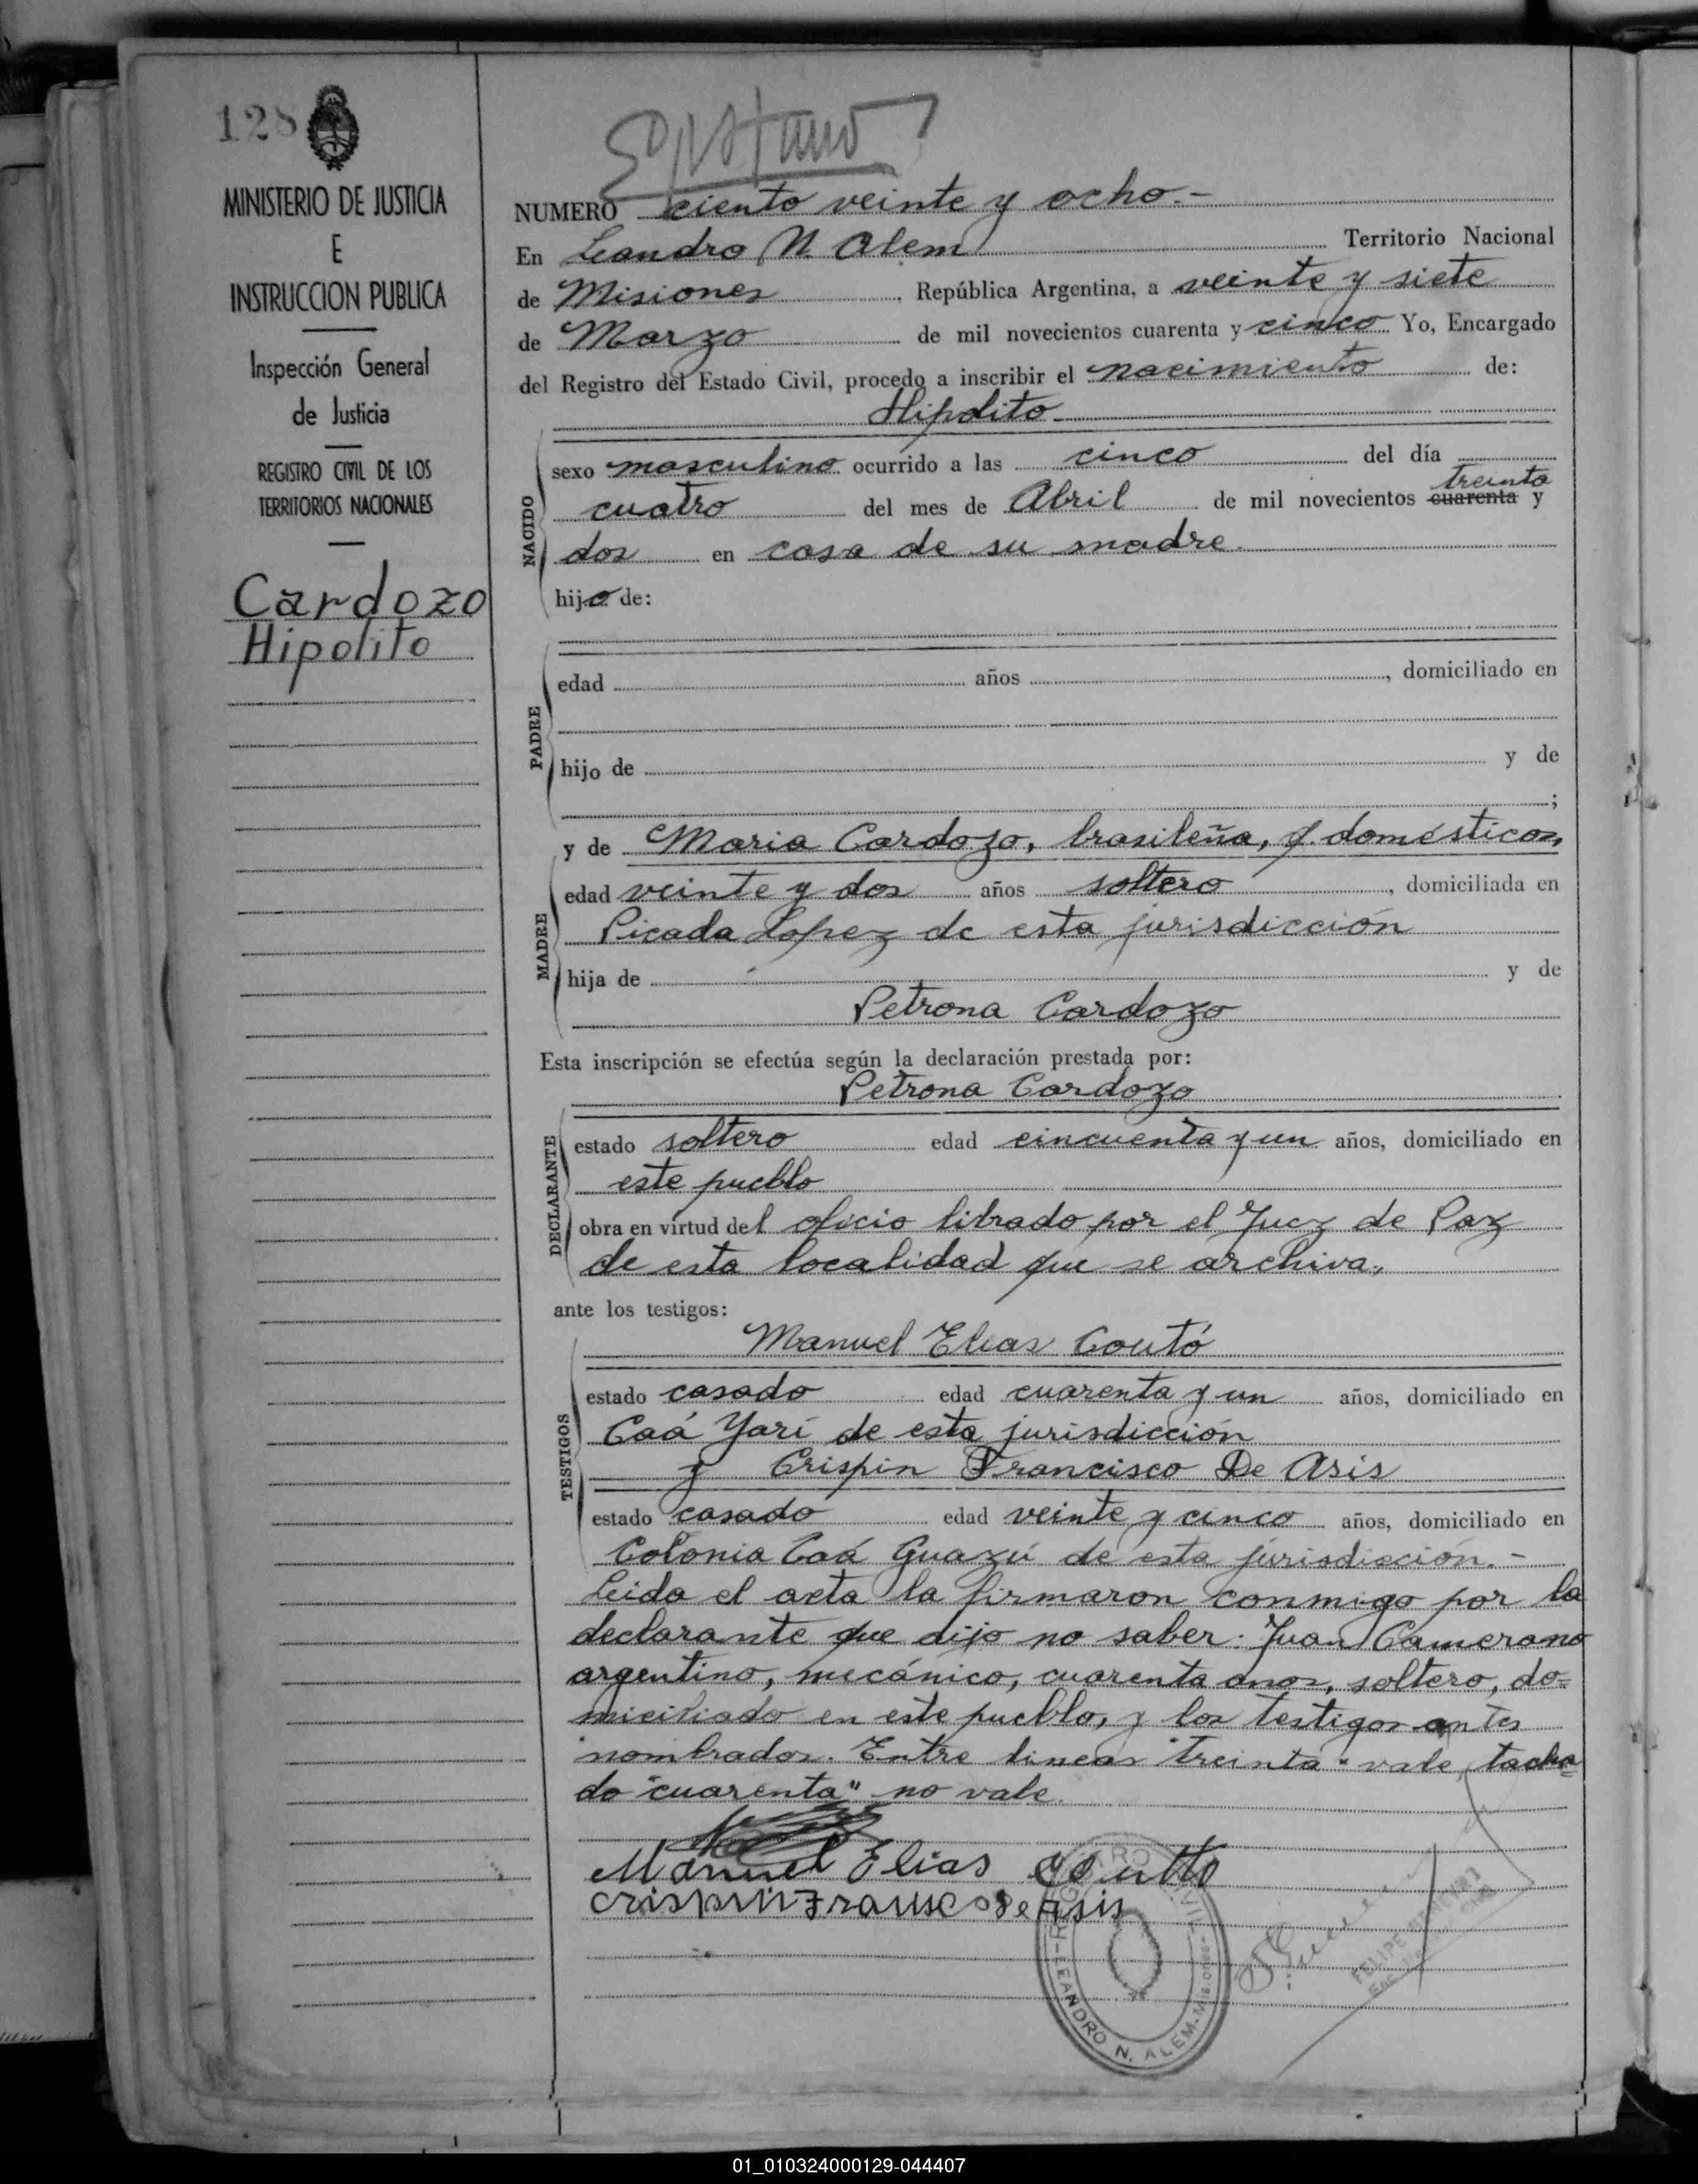 128
MINISTERIO DE JUSTICIA
E
INSTRUCCION PUBLICA
Inspección General
de Justicia
REGISTRO CIVIL DE LOS
TERRITORIOS NACIONALES
Cardozo
Hipolito
NUMERO ciento veinte y ocho.-
En Leandro N. Alem Territorio Nacional
de Misiones, República Argentina, a veinte y siete
de Marzo de mil novecientos cuarenta y cinco Yo, Encargado
del Registro del Estado Civil, procedo a inscribir el nacimiento de:
Hipolito
NACIDO
sexo masculino ocurrido a las cinco del día
treinta
cuatro del mes de Abril de mil novecientos cuarenta y
dos en casa de su madre.
hijo de:
PADRE
edad años, domiciliado en
hijo de y de
;
MADRE
y de Maria Cardozo, brasileña, q. domésticos,
edad veinte y dos años soltera, domiciliada en
Picada Lopez de esta jurisdicción
hija de y de
Petrona Cardozo
Esta inscripción se efectúa según la declaración prestada por:
Petrona Cardozo
DECLARANTE
estado soltera edad cincuenta y un años, domiciliado en
este pueblo
obra en virtud del oficio librado por el Juez de Paz
de esta localidad que se archiva,
ante los testigos:
Manuel Elias Coutó
TESTIGOS
estado casado edad cuarenta y un años, domiciliado en
Caá Yarí de esta jurisdicción
y Crispin Francisco De Asis
estado casado edad veinte y cinco años, domiciliado en
Colonia Caá Guazú de esta jurisdicción.-
Leida el acta la firmaron conmigo por la
declarante que dijo no saber: Juan Camerano
argentino, mecánico, cuarenta anos, soltero, do=
miciliado en este pueblo, y los testigos antes
nombrados. Entre lineas "treinta" vale, tacha=
do "cuarenta" no vale.
Manuel Elias Coutto
Crispin Francisco De Asis
REGISTRO CIVIL
LEANDRO N. ALEM - Misiones
FELIPE
01_010324000129-044407